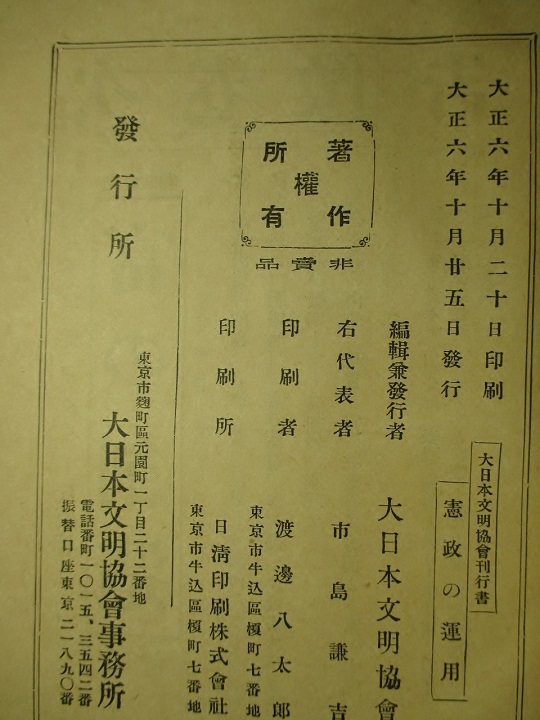 大正六年十月二十日印刷
大正六年十月廿五日發行
大日本文明協會刊行書
憲政の運用
編輯兼發行者
大日本文明協會
右代表者
市島謙吉
著作權所有
非賣品
印刷者
渡邊八太郎
東京市牛込區榎町七番地
印刷所
日清印刷株式會社
東京市牛込區榎町七番地
發行所
東京市麴町區元園町一丁目二十二番地
大日本文明協會事務所
電話番町一〇一五、三五四二番
振替口座東京二一八九〇番